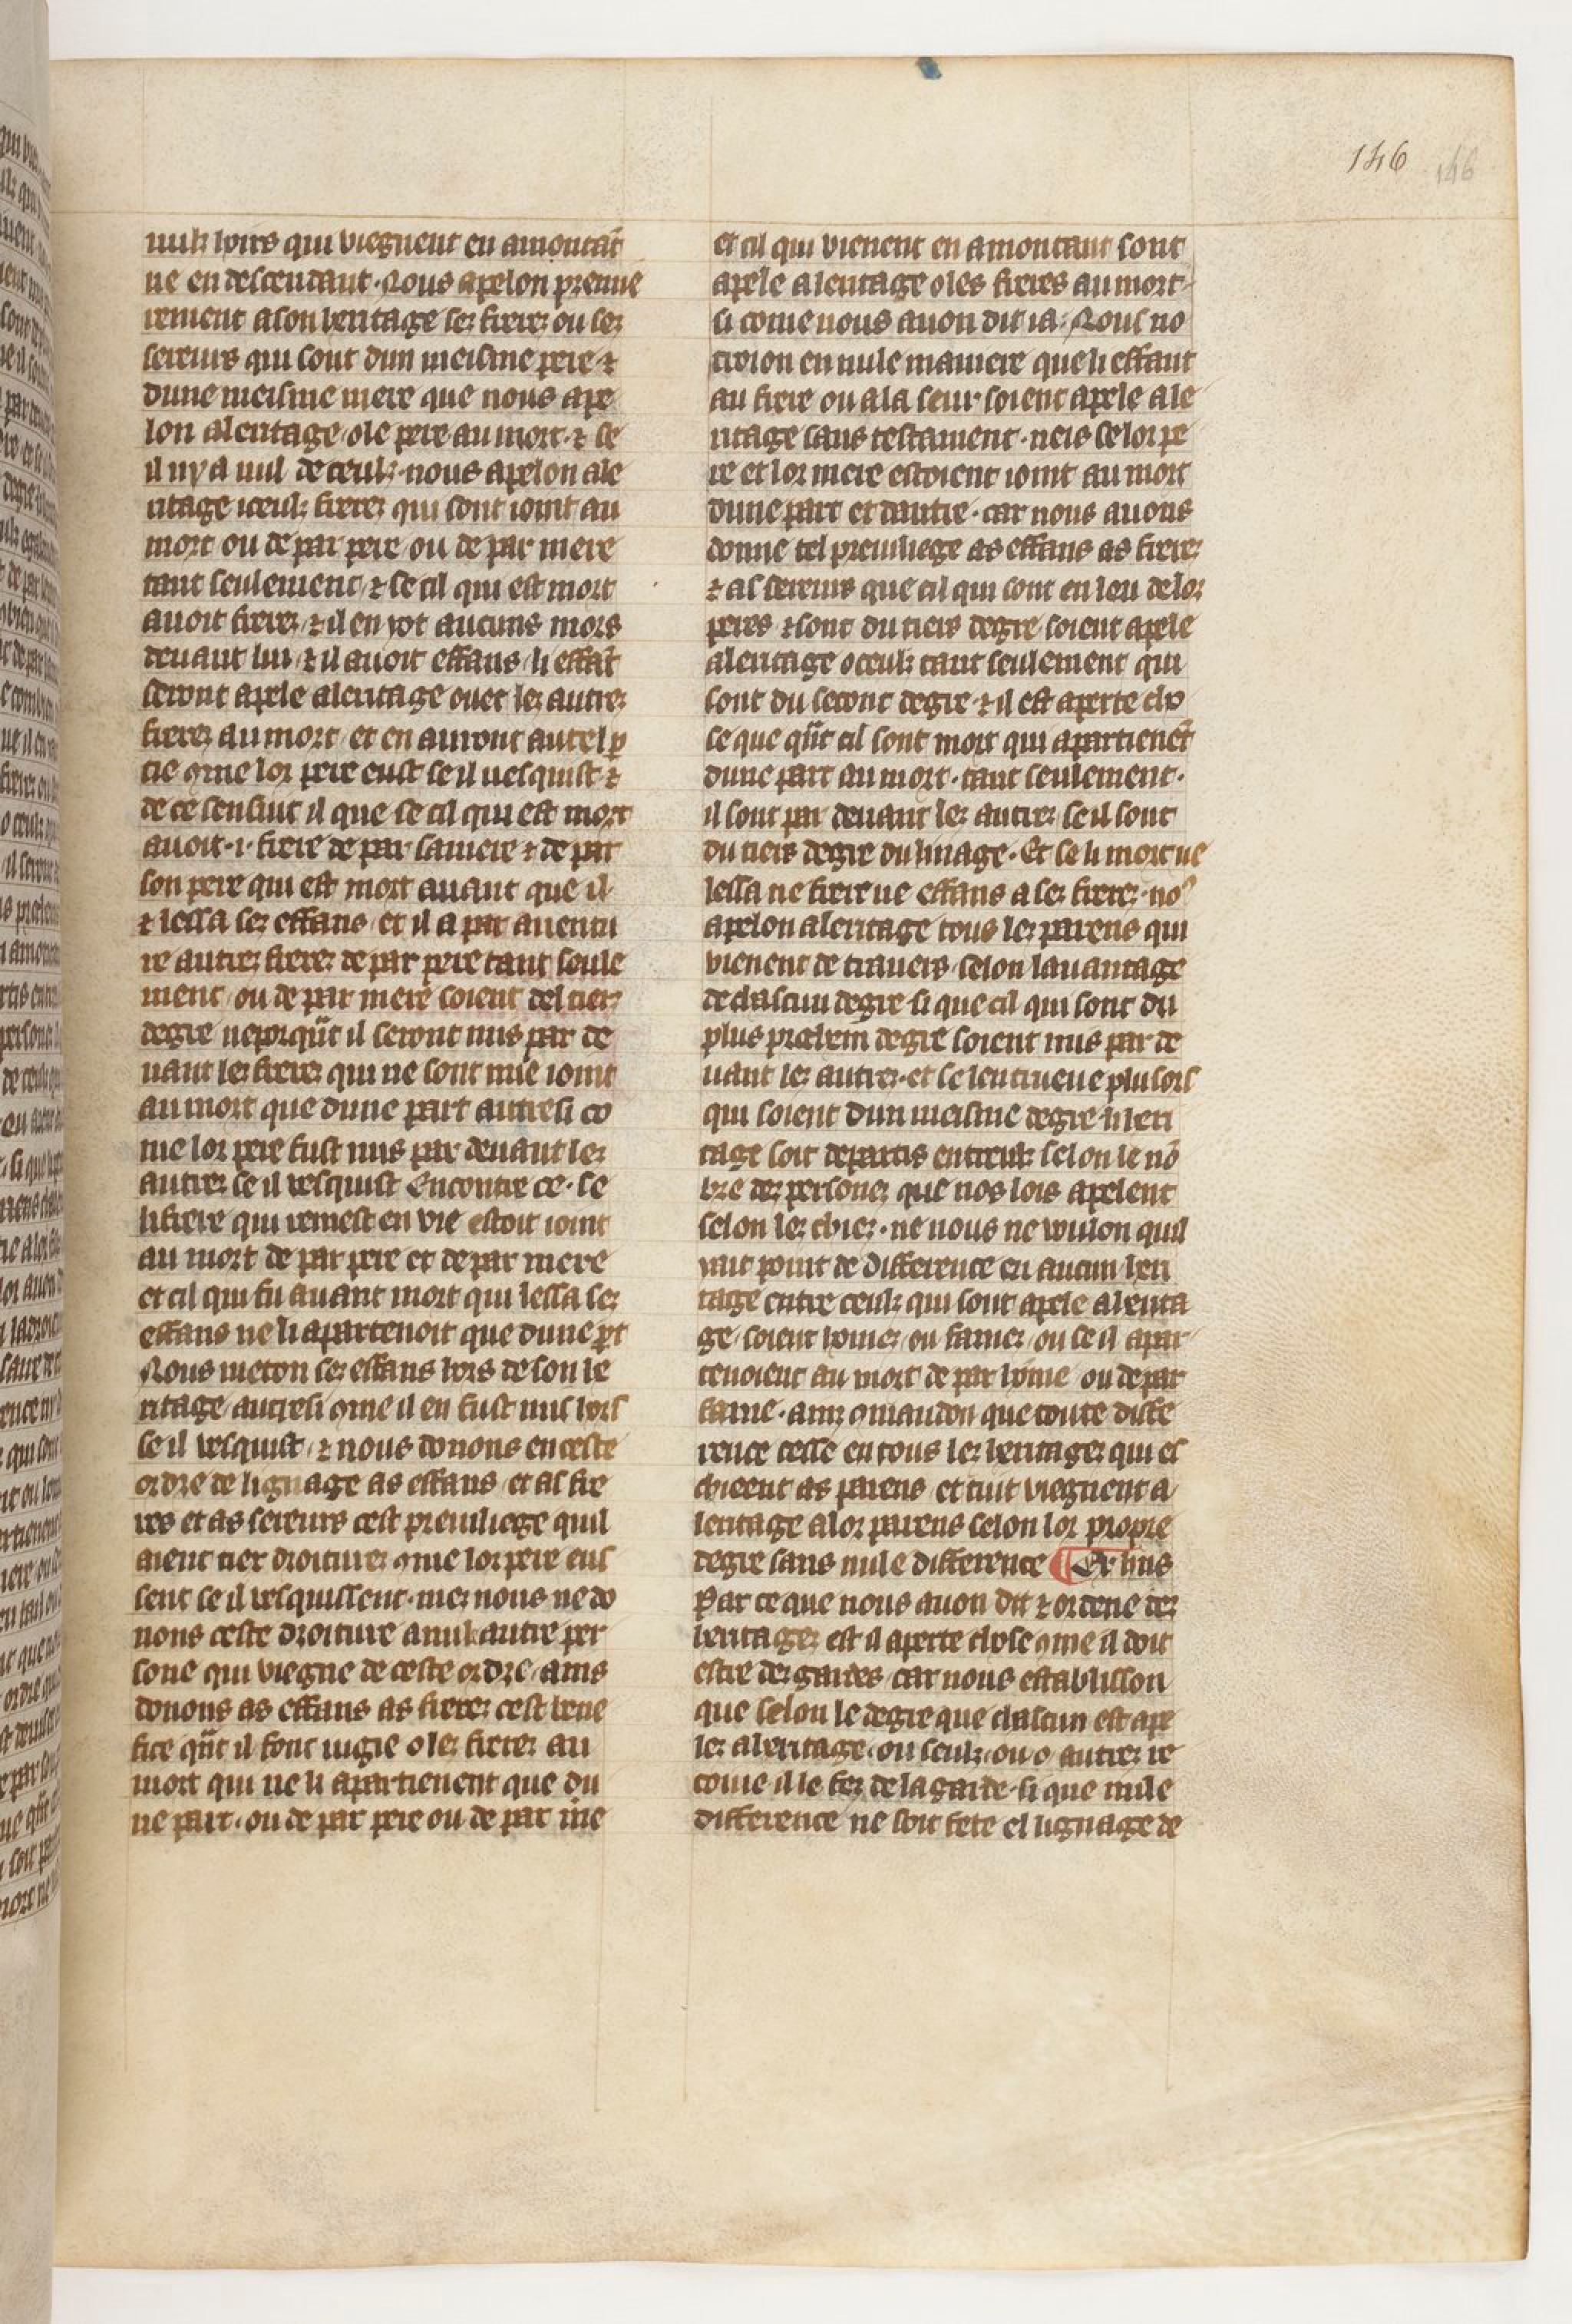 146 146
nulz hoirs qui viegnent en amontāt
ne en descendant. Nous apelon premie
rement a son heritage sez frerez ou sez
sereurs qui sont dun meisme pere ⁊
dune meisme mere que nous ape
lon aleritage o le pere au mort. ⁊ se
il ny a nul de ceulz. nous apelon ale
ritage iceulz frerez qui sont ioint au
mort ou de par pere ou de par mere
tant seulement / ⁊ se cil qui est mort
auoit frerez / ⁊ il en yot aucuns mors
deuant lui / ⁊ il auoit effans / li effāt
seront apele aleritage ouec lez autrez
frerez au mort / et en auront autel p̱
tie ꝯme lor pere eust se il uesquist ⁊
de ce sensiut il que se cil qui est mort
auoit .i. frere de par sa mere ⁊ de par
son pere qui est mort auant que il
⁊ lessa sez effans / et il a par auentu
re autrez frerez de par pere tant seule
ment / ou de par mere soient del tierz
degre neporqūt il seront mis par de
uant lez frerez qui ne sont mie ioint
au mort que dune part autresi co
me lor pere fust mis par deuant lez
autrez se il vesquist Encontre ce. se
li frere qui remest en vie estoit ioint
au mort de par pere et de par mere
et cil qui fu auant mort qui lessa sez
effans ne li apartenoit que dune p̱t
Nous meton sez effans hors de son le
ritage / autresi ꝯme il en fust mis hors
se il vesquist / ⁊ nous donons en ceste
ordre de lignage as effans / et as fre
res et as sereurs cest preuiliege quil
aient tiex droiturez ꝯme lor pere eus
sent se il vesquissent. mez nous ne do
nons ceste droiture a nule autre per
sone qui viegne de ceste ordre / ains
donons as effans as frerez cest bene
fice qūt il sont iugie o lez frerez au
mort qui ne li apartienent que du
ne part. ou de par pere ou de par me
et cil qui vienent en amontant sont
apele aleritage o les freres au mort
si come nous auon dit ia. Nous no
troion en nule maniere que li effant
au frere ou a la seur soient apele ale
ritage sans testament. neis se lor pe
re et lor mere estoient ioint au mort
dune part et dautre. car nous auons
donne tel preuiliege as effans as frerez
⁊ as sereurs que cil qui sont en leu de lor
peres ⁊ sont du tiers degre soient apele
aleritage o ceulz tant seulement qui
sont du secont degre ⁊ il est aperte cho
se que qūt cil sont mort qui apartienēt
dune part au mort. tant seulement.
il sont par deuant lez autrez se il sont
du tiers degre du linage. Et se li mort ne
lessa ne frere ne effans a sez frerez. noꝰ
apelon aleritage tous lez parens qui
vienent de trauers / selon lauantage
de chascun degre si que cil qui sont du
plus prochein degre soient mis par de
uant lez autrez. et se len trueue plusors
qui soient dun meisme degre li heri
tage soit departis entreulz selon le nō
bre dez personez que nos lois apelent
selon lez chiez. ne nous ne voulon quil
viit point de difference en aucun heri
tage entre ceulz qui sont apele alerita
ge / soient homez / ou famez / ou se il apar
tenoient au mort de par home / ou de par
fame. ainz ꝯmandon que toute diffe
rence cesse en tous lez heritagez qui es
chieent as parens / et tuit viegnent a
leritage a lor parens selon lor propre
degre sans nule difference ¶ Ex hiis
Par ce que nous auon dit ⁊ ordene dez
heritagez est il aperte chose ꝯme il doit
estre dez gardes / car nous establisson
que selon le degre que chascun est ape
lez aleritage. ou seulz / ou o autrez re
coiue il le fez de la garde. si que nule
difference ne soit fete el lignage de